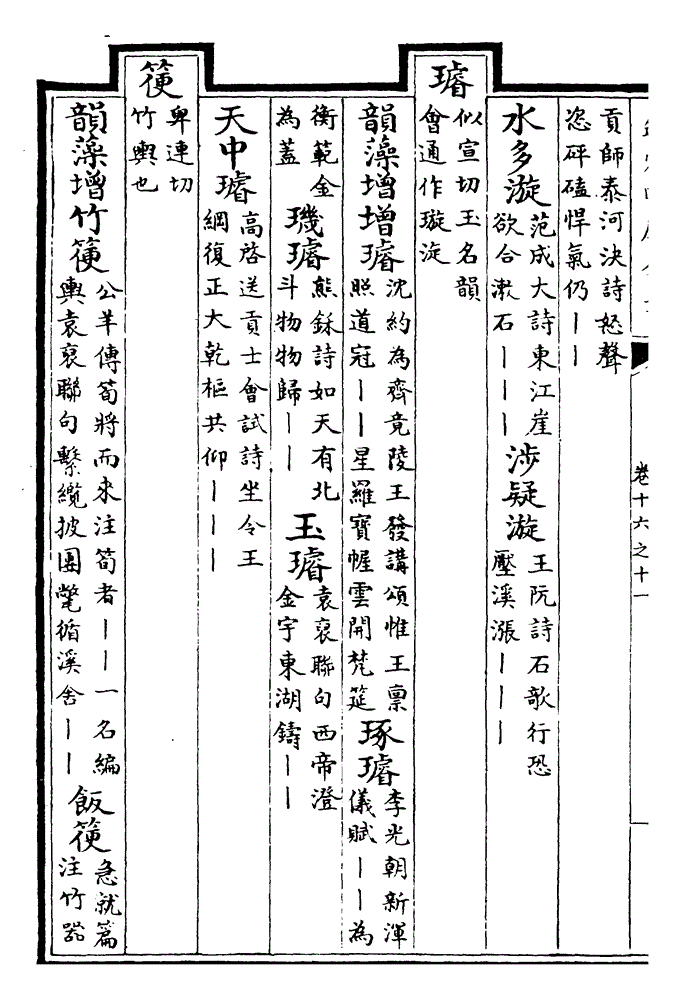 卷十六之十一
貢師泰河決詩怒聲
恣砰磕悍氣仍丨丨
水多漩
范成大詩東江崖
欲合漱石丨丨丨
涉疑漩
王阮詩石歌行恐
壓溪漲丨丨丨
璿
似宣切玉名韻
會通作璇
韻藻增增璿
沈約為齊竟陵王發講頌惟王禀
照道冠丨丨星羅寶幄雲開梵筵
琢璿
李光朝新渾
儀賦丨丨為
衡範金
為蓋
璣璿
熊鉌詩如天有北
斗物物歸丨丨
玉璿
袁裒聯句西帝澄
金宇東湖鑄丨丨
天中璿
高啓送貢士會試詩坐令王
綱復正大乾樞共仰丨丨丨
箯
卑連切
竹輿也
韻藻增竹箯
公羊傳筍將而來注筍者丨丨一名編
輿袁裒聯句繫纜披團氅循溪舍丨丨
飯箯
急就篇
注竹器